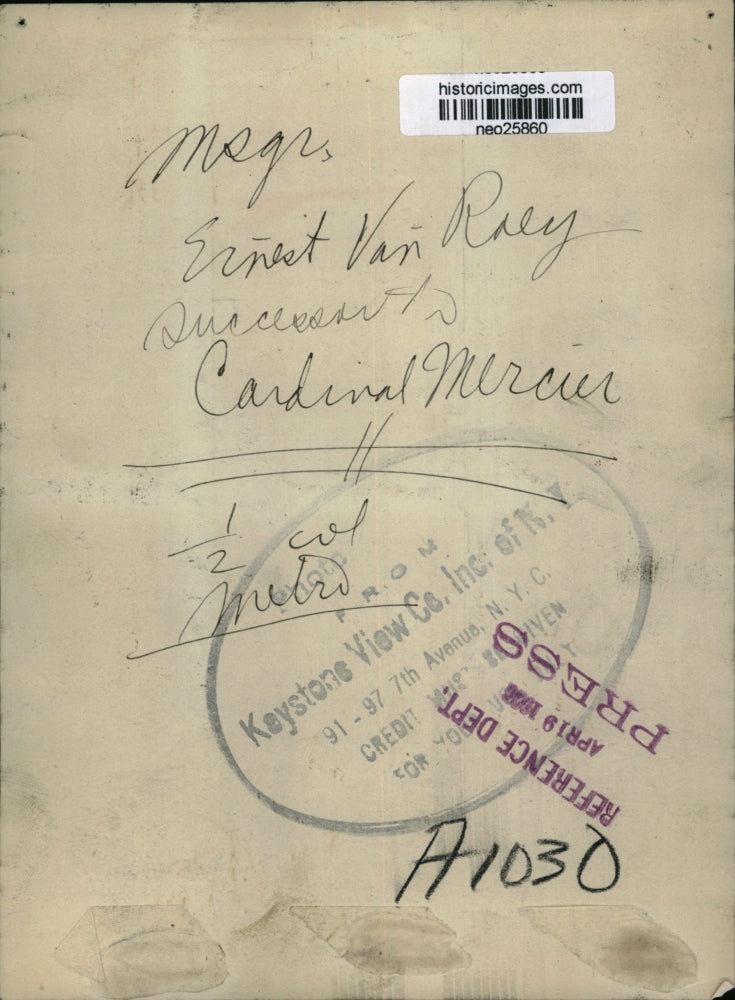 historicimages.com
neo25860
Msgr.
Ernest Van Roey
successor to
Cardinal Mercier
1/2 col
metro
PHOTO
FROM
Keystone View Co. Inc. of N. Y.
91 - 97 7th Avenue, N. Y. C.
CREDIT MUST BE GIVEN
FOR YOUR
PRESS
APR 19 1926
REFERENCE DEPT.
A1030